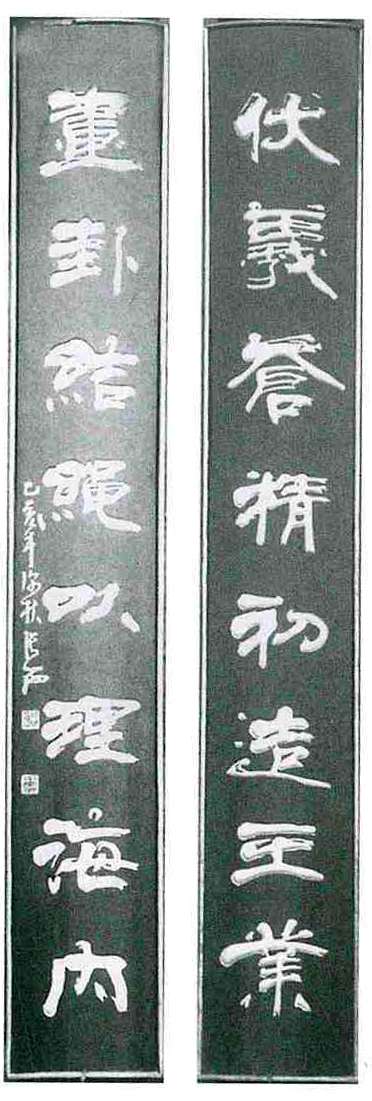 伏羲蒼精初造王業
畫卦結繩以理海內
己亥年深秋